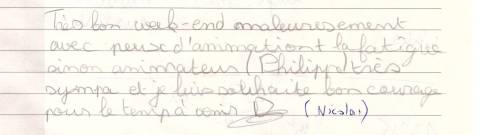 Très bon week-end maleuresement
avec peux d'animation + la fatigue
sinon animateur (Philippe) très
sympa et je luis souhaite bon courage
pour le temp à venir :D (Nicolas)